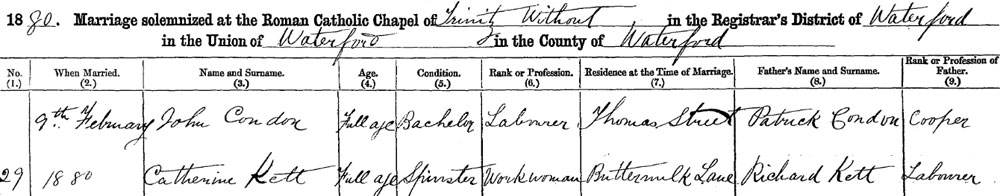 1880. Marriage solemnized at the Roman Catholic Chapel of Trinity Without, in the Registrar's District of Waterford
in the Union of Waterford in the County of Waterford
No. (1.) When Married. (2.) Name and Surname. (3.) Age. (4.) Condition. (5.) Rank or Profession. (6.) Residence at the Time of Marriage. (7.) Father's Name and Surname. (8.) Rank or Profession of Father. (9.)
9th February John Condon Full age Bachelor Labourer Thomas Street Patrick Condon Cooper
29 1880 Catherine Kett Full age Spinster Workwoman Buttermilk Lane Richard Kett Labourer